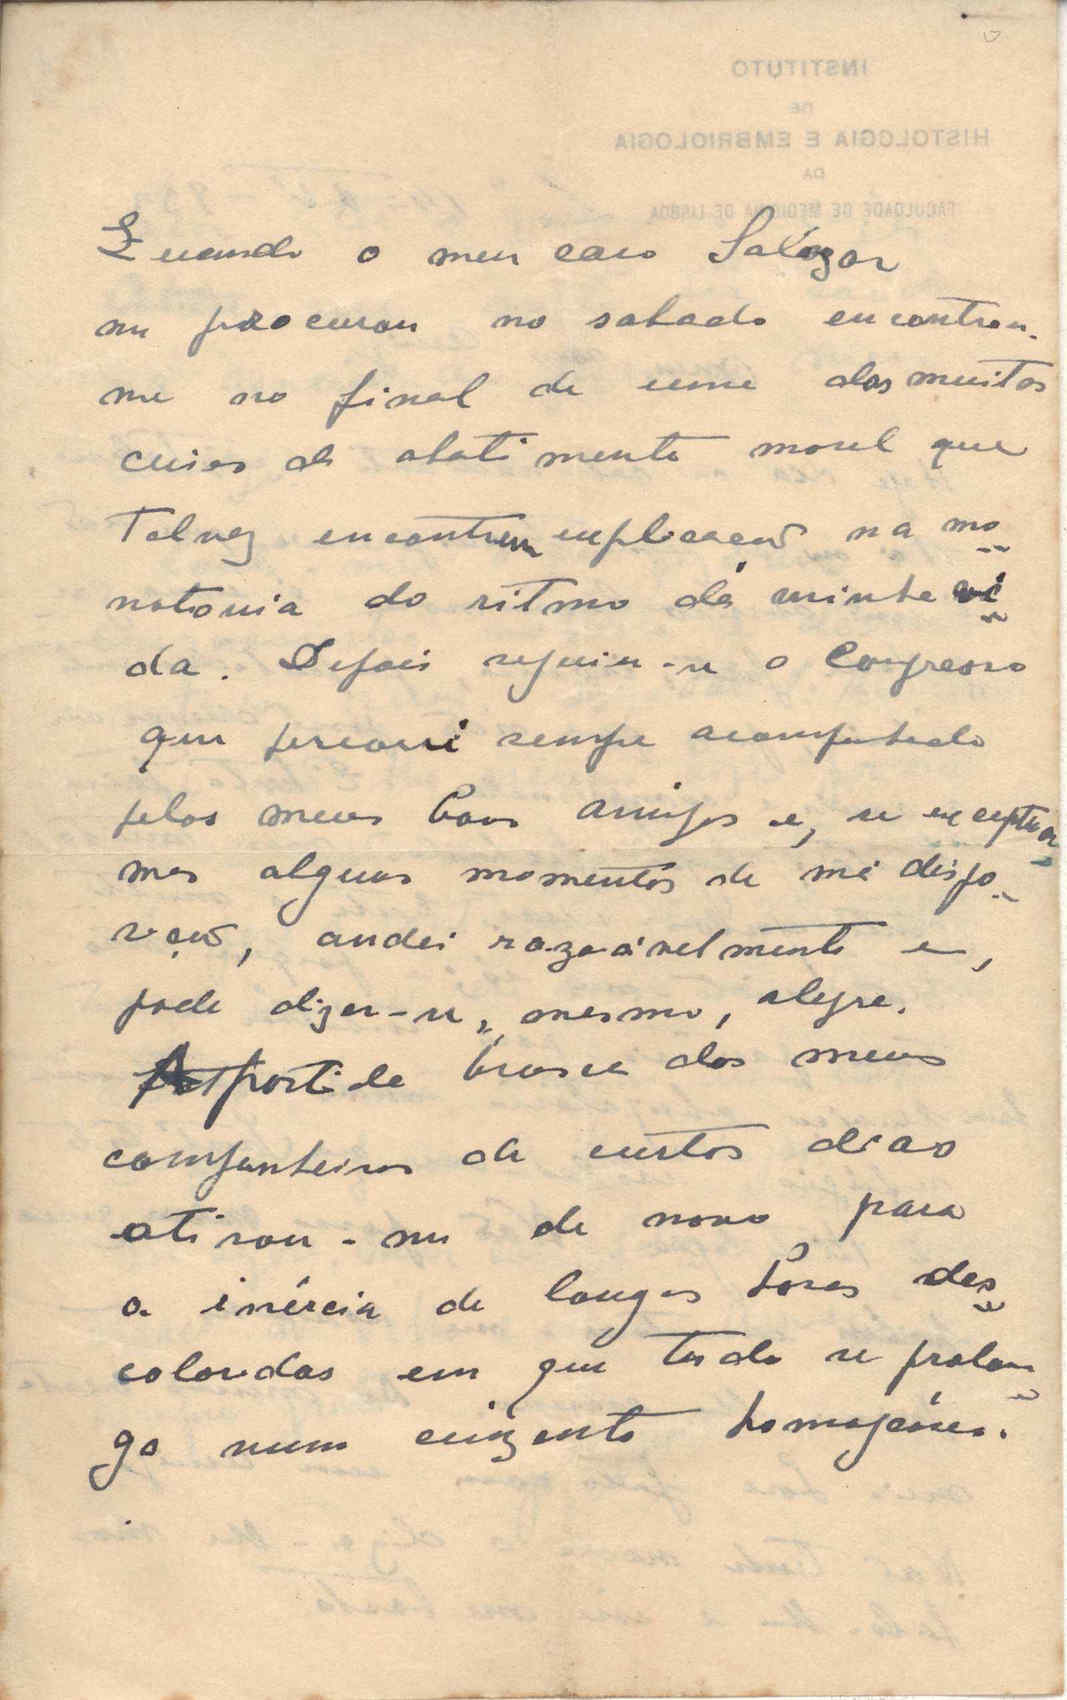 INSTITUTO
DE
HISTOLOGIA E EMBRIOLOGIA
DA
FACULDADE DE MEDICINA DE LISBOA
Quando o meu caro Salazar
me procurou no sabado encontrou-
me no final de uma das muitas
crises de abatimento moral que
talvez encontrem explicação na mo-
notonia do ritmo da minha vi-
da. Depois seguiu-se o Congresso
que percorri sempre acompanhado
pelos meus bons amigos e, se exceptuar-
mos alguns momentos de má dispo-
sição, andei razoávelmente e,
pode dizer-se, mesmo, alegre.
A partida brusca dos meus
companheiros de curtos dias
atirou-me de novo para
a inércia de longas horas des-
coloridas em que tudo se prolon-
ga num cinzento homogéneo.